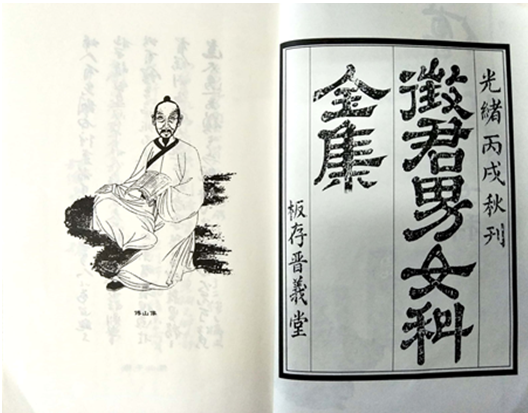 光緒丙戌秋刊
徵君男女科
全集
板存晋義堂
傅山像